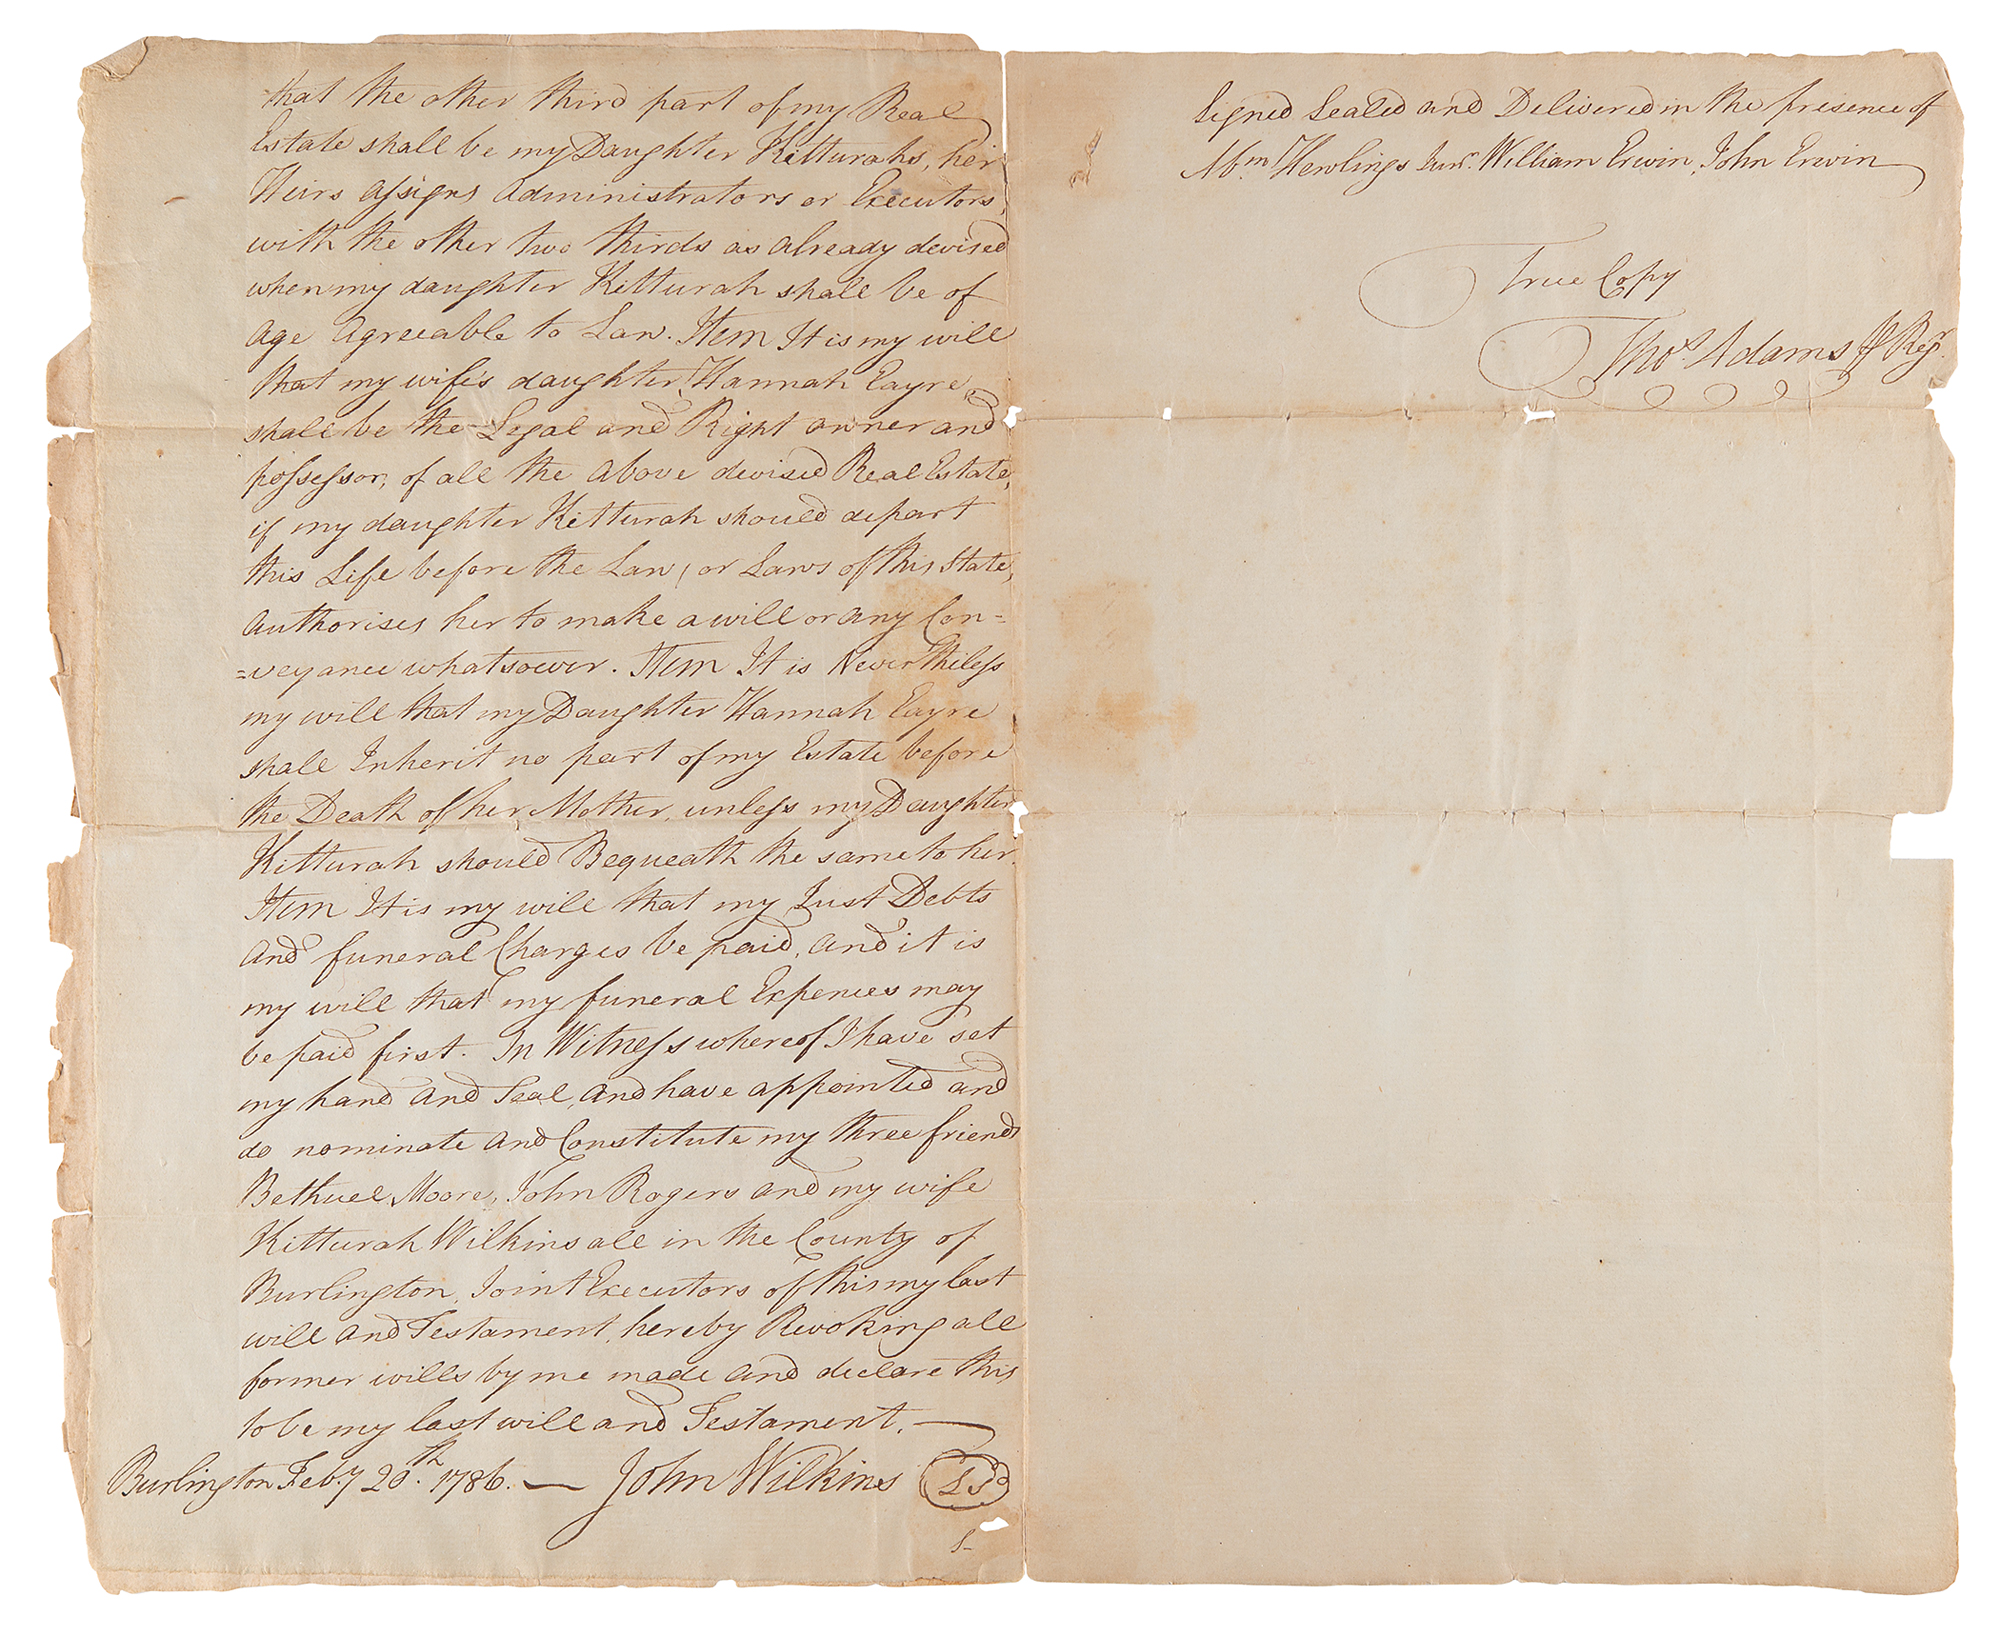 that the other third part of my Real
Estate shall be my Daughter Kitturahs, her
Heirs assigns administrators or Executors,
with the other two thirds as already devised
when my daughter Kitturah shall be of
age agreeable to Law. Item It is my will
that my wife's daughter Hannah Eayre
shall be the Legal and Right owner and
possessor, of all the above devised Real Estate,
if my daughter Kitturah should depart
this Life before the Law, or Laws of this State,
authorises her to make a will or any Con=
=veyance whatsoever. Item It is Neverthiless
my will that my Daughter Hannah Eayre
shall Inherit no part of my Estate before
the Death of her Mother, unless my Daughter
Kitturah should Bequeath the same to her.
Item It is my will that my Just Debts
and funeral Charges be paid, and it is
my will that my funeral Expences may
be paid first. In Witness whereof I have set
my hand and Seal, and have appointed and
do nominate and Constitute my three friends
Bethuel Moore, John Rogers and my wife
Kitturah Wilkins all in the County of
Burlington, Joint Executors of this my last
will and Testament, hereby Revoking all
former wills by me made and declare this
to be my last will and Testament.
Burlington Feb.y 20.th 1786. — John Wilkins LS
Signed Sealed and Delivered in the presence of
Wm Hewlings Junr. William Erwin, John Erwin
True Copy
Thos. Adams Regr.